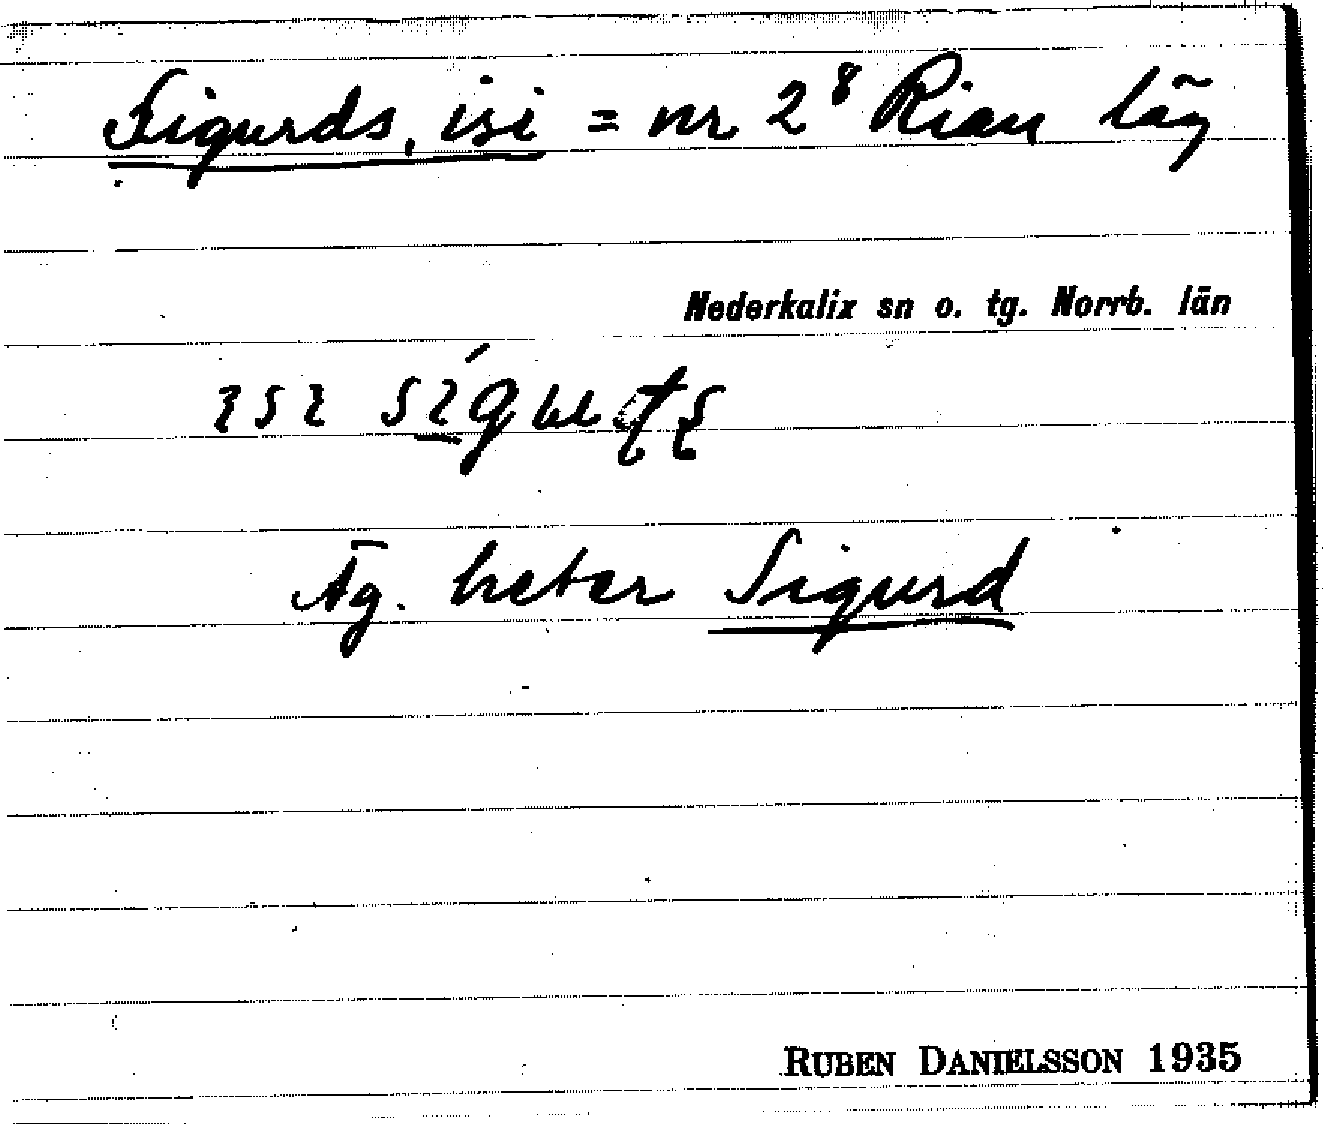 Sigurds, isi = nr 2⁸ Rian läg
Nederkalix sn o. tg. Norrb. län
Äg. heter Sigurd
RUBEN DANIELSSON 1935